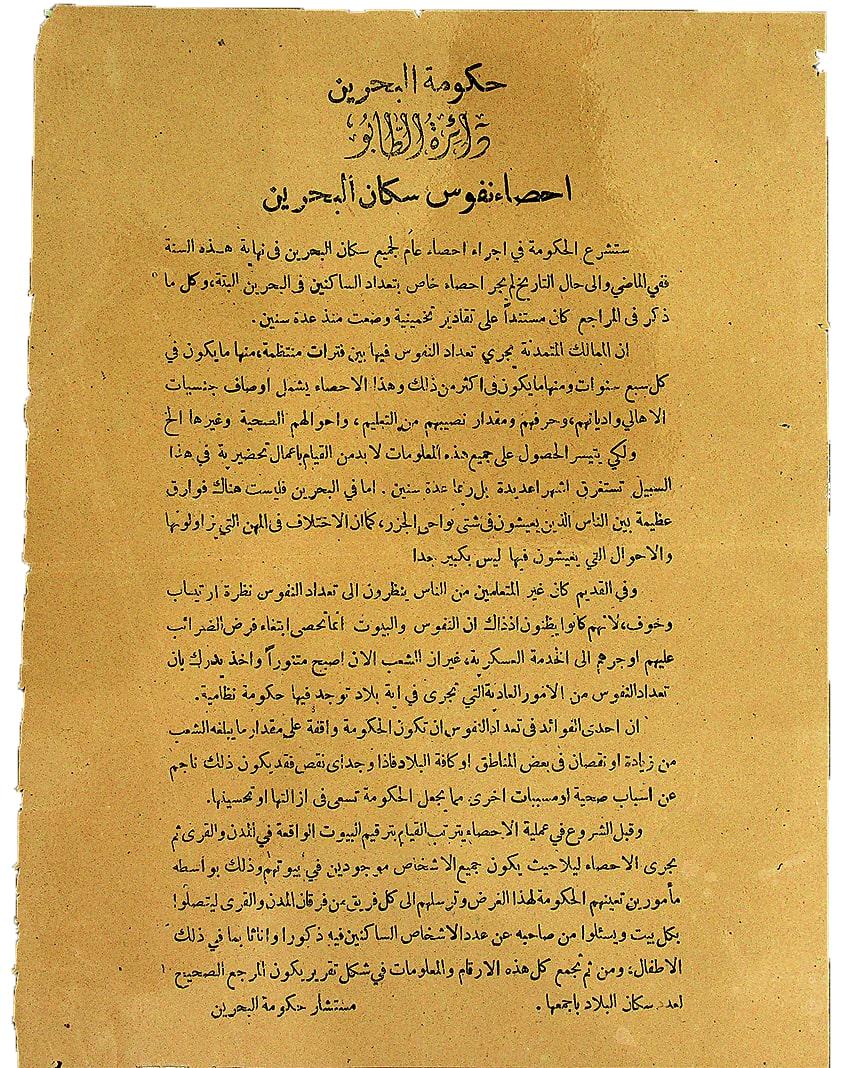 حكومة البحرين
دَائِرَةُ الطَّابُو
احصاء نفوس سكان البحرين
ستشرع الحكومة في اجراء احصاء عام لجميع سكان البحرين فى نهاية هذه السنة
ففي الماضي والى حال التاريخ لم يجر احصاء خاص بتعداد الساكنين فى البحرين البتة، وكل ما
ذكر فى المراجع كان مستنداً على تقادير تخمينية وضعت منذ عدة سنين.
ان الممالك المتمدنة يجري تعداد النفوس فيها بين فترات منتظمة، منها ما يكون في
كل سبع سنوات ومنها ما يكون فى اكثر من ذلك وهذا الاحصاء يشمل اوصاف جنسيات
الاهالي واديانهم، وحرفهم ومقدار نصيبهم من التعليم، واحوالهم الصحية وغيرها الخ
ولكي يتيسر الحصول على جميع هذه المعلومات لا بد من القيام باعمال تحضيرية في هذا
السبيل تستغرق اشهرا عديدة بل ربما عدة سنين. اما في البحرين فليست هناك فوارق
عظيمة بين الناس الذين يعيشون فى شتى نواحي الجزر، كما ان الاختلاف فى المهن التي يزاولونها
والاحوال التي يعيشون فيها ليس بكبير جدا
وفي القديم كان غير المتعلمين من الناس ينظرون الى تعداد النفوس نظرة ارتياب
وخوف، لانهم كانوا يظنون اذ ذاك ان النفوس والبيوت انما تحصى ابتغاء فرض الضرائب
عليهم او جرهم الى الخدمة العسكرية، غير ان الشعب الان اصبح متنوراً واخذ يدرك بان
تعداد النفوس من الامور العادية التي تجرى في اية بلاد توجد فيها حكومة نظامية.
ان احدى الفوائد فى تعداد النفوس ان تكون الحكومة واقفة على مقدار ما يبلغه الشعب
من زيادة او نقصان فى بعض المناطق او كافة البلاد فاذا وجد اى نقص فقد يكون ذلك ناجم
عن اسباب صحية او مسببات اخرى مما يجعل الحكومة تسعى فى ازالتها او تحسينها.
وقبل الشروع في عملية الاحصاء يترتب القيام بترقيم البيوت الواقعة في المدن والقرى ثم
يجرى الاحصاء ليلا حيث يكون جميع الاشخاص موجودين في بيوتهم وذلك بواسطه
مأمورين تعينهم الحكومة لهذا الغرض وترسلهم الى كل فريق من فرقان المدن والقرى ليتصلوا
بكل بيت ويسئلوا من صاحبه عن عدد الاشخاص الساكنين فيه ذكورا واناثا بما في ذلك
الاطفال، ومن ثم تجمع كل هذه الارقام والمعلومات في شكل تقرير يكون المرجع الصحيح
لعدد سكان البلاد باجمعها. مستشار حكومة البحرين